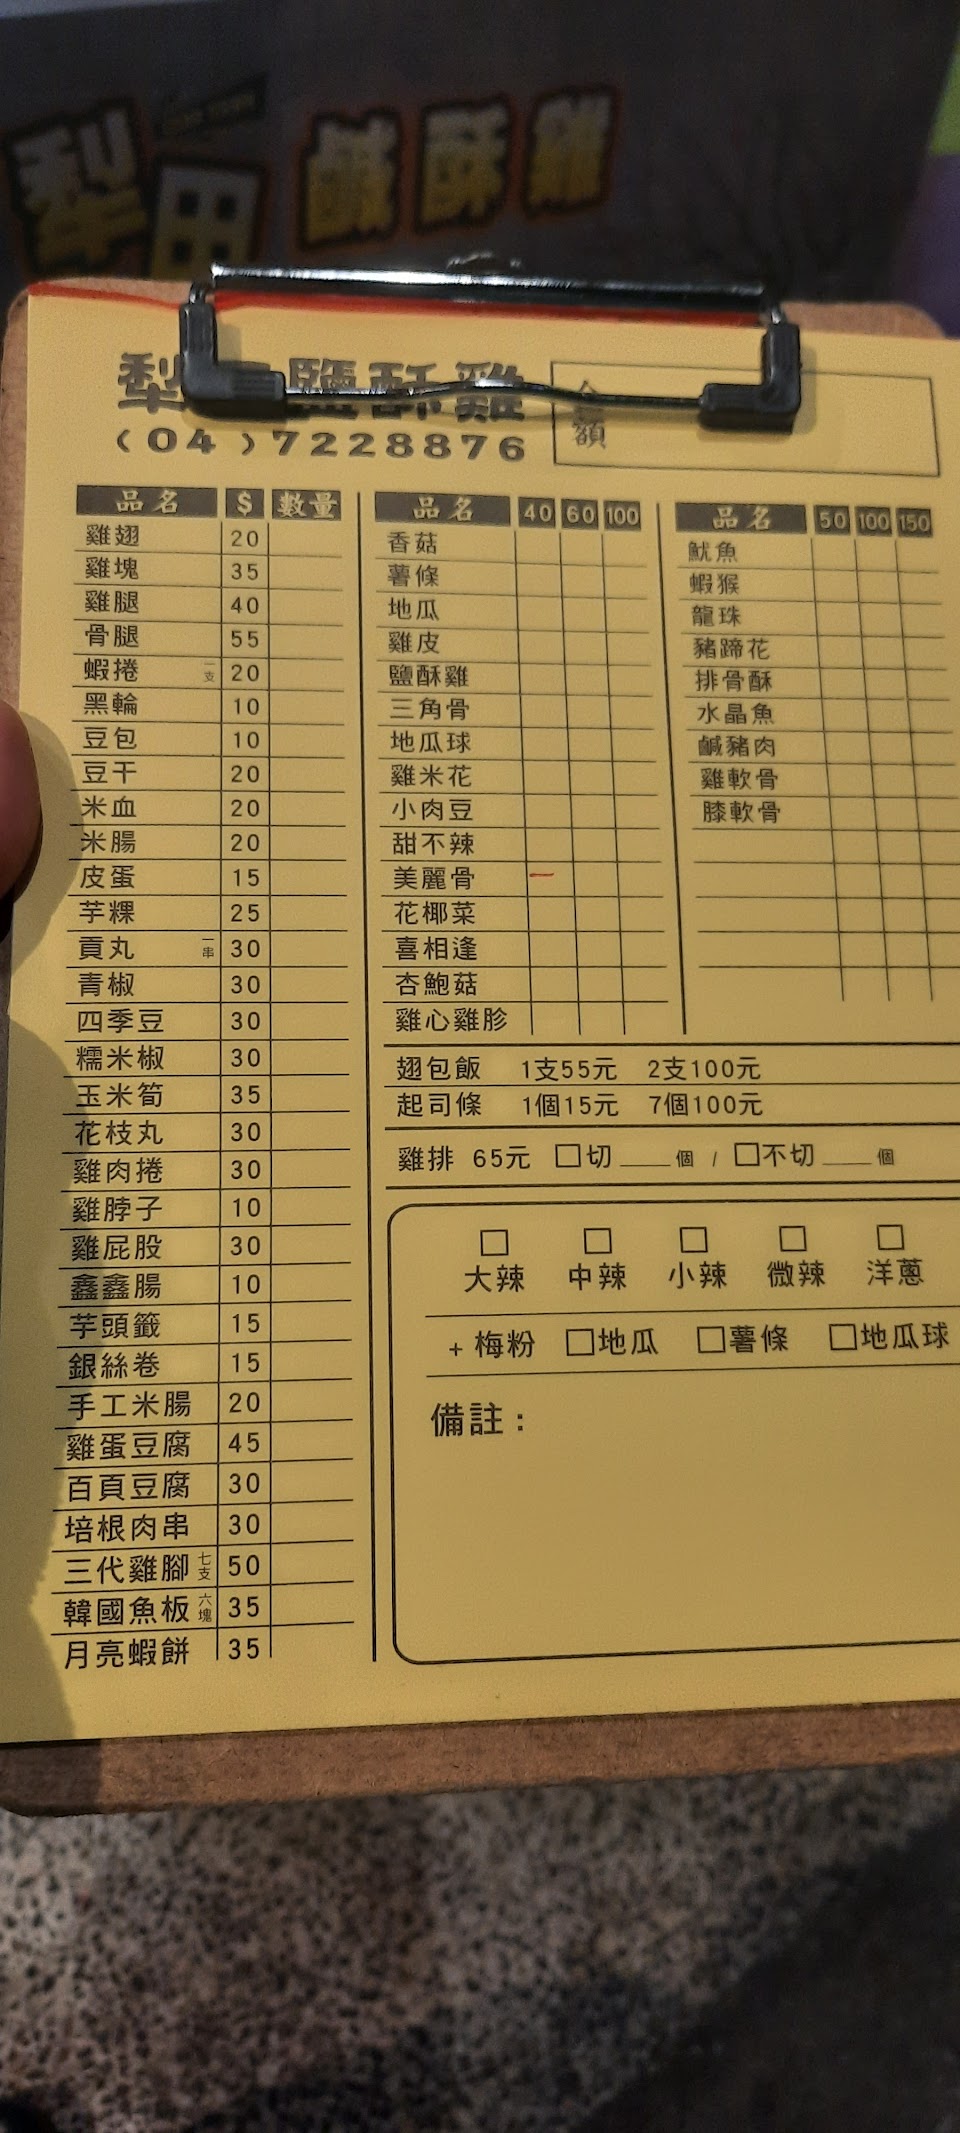 犁田 鹹酥雞
犁 鹽酥雞
(04)7228876
金額
品名 $ 數量
雞翅 20
雞塊 35
雞腿 40
骨腿 55
蝦捲 一支 20
黑輪 10
豆包 10
豆干 20
米血 20
米腸 20
皮蛋 15
芋粿 25
貢丸 一串 30
青椒 30
四季豆 30
糯米椒 30
玉米筍 35
花枝丸 30
雞肉捲 30
雞脖子 10
雞屁股 30
鑫鑫腸 10
芋頭籤 15
銀絲卷 15
手工米腸 20
雞蛋豆腐 45
百頁豆腐 30
培根肉串 30
三代雞腳 七支 50
韓國魚板 六塊 35
月亮蝦餅 35
品名 40 60 100
香菇
薯條
地瓜
雞皮
鹽酥雞
三角骨
地瓜球
雞米花
小肉豆
甜不辣
美麗骨
花椰菜
喜相逢
杏鮑菇
雞心雞胗
品名 50 100 150
魷魚
蝦猴
龍珠
豬蹄花
排骨酥
水晶魚
鹹豬肉
雞軟骨
膝軟骨
翅包飯 1支55元 2支100元
起司條 1個15元 7個100元
雞排 65元 □切 ____個 / □不切 ____個
□大辣 □中辣 □小辣 □微辣 □洋蔥
+ 梅粉 □地瓜 □薯條 □地瓜球
備註：